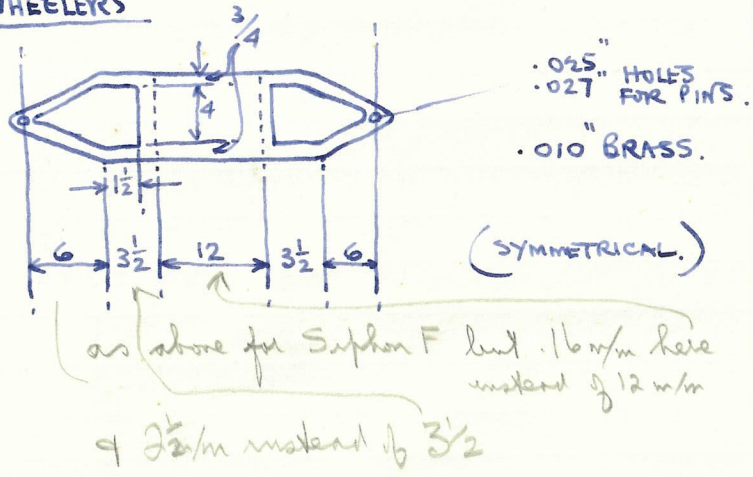 WHEELERS
3/4
4
1½
.025"
.027" HOLES FOR PINS.
.010" BRASS.
6 3½ 12 3½ 6
(SYMMETRICAL.)
as above for Siphon F but .16 m/m here
instead of 12 m/m
& 2½ m/m instead of 3½